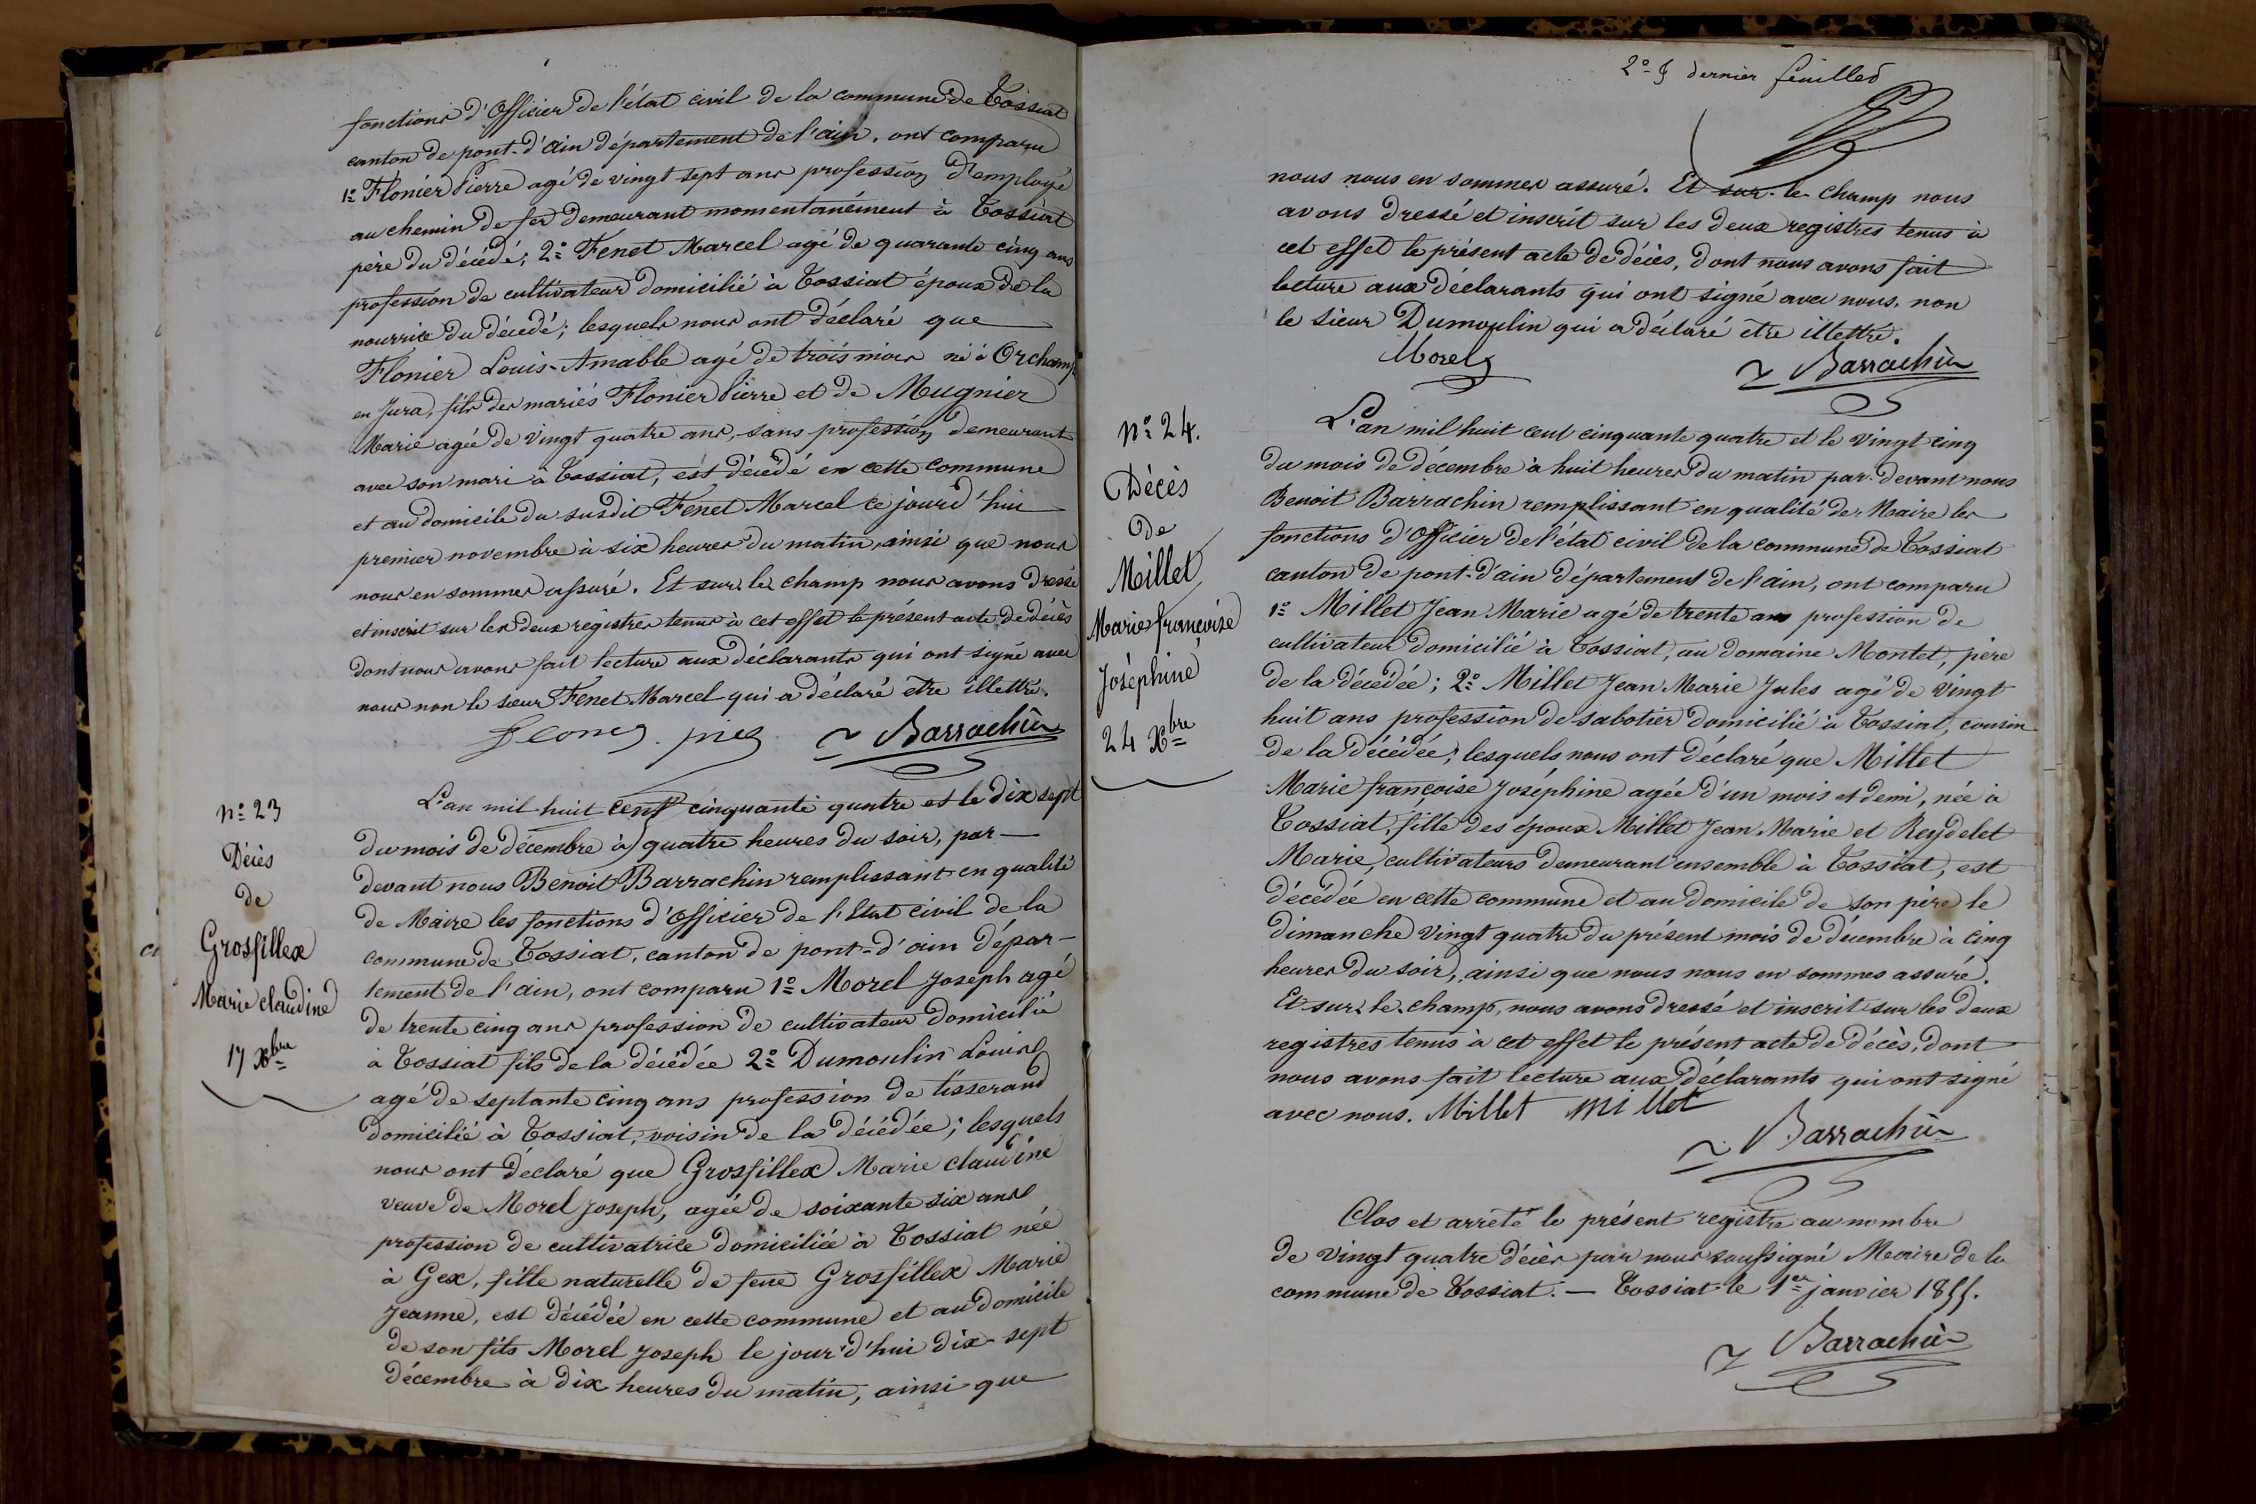 fonctions d'Officier de l'état civil de la commune de Tossiat
canton de pont-d'ain département de l'ain, ont comparu
1º Flonier Pierre agé de vingt sept ans profession d'employé
au chemin de fer demeurant momentanément à Tossiat
père du décédé; 2º Fenet Marcel agé de quarante cinq ans
profession de cultivateur domicilié à Tossiat époux de la
nourrice du décédé; lesquels nous ont déclaré que
Flonier Louis-Amable agé de trois mois né à Orchamp
en Jura, fils des mariés Flonier Pierre et de Mugnier
Marie agée de vingt quatre ans, sans profession demeurant
avec son mari à Tossiat, est décédé en cette commune
et au domicile du susdit Fenet Marcel ce jourd'hui
premier novembre à six heures du matin, ainsi que nous
nous en sommes assuré. Et sur le champ nous avons dressé
et inscrit sur les deux registres tenus à cet effet le présent acte de décès
dont nous avons fait lecture aux déclarants qui ont signé avec
nous non le sieur Fenet Marcel qui a déclaré être illettré.
Barrachin
Nº 23
Décès
de
Grosfillex
Marie claudine
17 Xbre
L'an mil huit cent cinquante quatre et le dix sept
du mois de décembre à quatre heures du soir, par-
devant nous Benoit Barrachin remplissant en qualité
de Maire les fonctions d'Officier de l'Etat civil de la
commune de Tossiat, canton de pont-d'ain dépar-
tement de l'ain, ont comparu 1º Morel Joseph agé
de trente cinq ans profession de cultivateur domicilié
à Tossiat fils de la décédée 2º Dumoulin Louis
agé de septante cinq ans profession de tisserand
domicilié à Tossiat, voisin de la décédée; lesquels
nous ont déclaré que Grosfillex Marie claudine
veuve de Morel Joseph, agée de soixante six ans
profession de cultivatrice domiciliée à Tossiat née
à Gex, fille naturelle de feue Grosfillex Marie
Jeanne, est décédée en cette commune et au domicile
de son fils Morel Joseph le jour d'hui dix-sept
décembre à dix heures du matin, ainsi que
2º & dernier feuillet
nous nous en sommes assuré. Et sur-le-champ nous
avons dressé et inscrit sur les deux registres tenus à
cet effet le présent acte de décès, dont nous avons fait
lecture aux déclarants qui ont signé avec nous, non
le sieur Dumoulin qui a déclaré être illettré.
Morel Barrachin
Nº 24.
Décès
de
Millet
Marie françoise
Joséphine
24 Xbre
L'an mil huit cent cinquante quatre et le vingt cinq
du mois de décembre à huit heures du matin par-devant nous
Benoit Barrachin remplissant en qualité de Maire les
fonctions d'Officier de l'état civil de la commune de Tossiat
canton de pont-d'ain département de l'ain, ont comparu
1º Millet Jean Marie agé de trente ans profession de
cultivateur domicilié à Tossiat, au domaine Montet, père
de la décédée; 2º Millet Jean Marie Jules agé de vingt
huit ans profession de sabotier domicilié à Tossiat, cousin
de la décédée; lesquels nous ont déclaré que Millet
Marie françoise Joséphine agée d'un mois et demi, née à
Tossiat, fille des époux Millet Jean Marie et Reydelet
Marie, cultivateurs demeurant ensemble à Tossiat, est
décédée en cette commune et au domicile de son père le
dimanche vingt quatre du présent mois de décembre à cinq
heures du soir, ainsi que nous nous en sommes assuré.
Et sur-le-champ, nous avons dressé et inscrit sur les deux
registres tenus à cet effet le présent acte de décès, dont
nous avons fait lecture aux déclarants qui ont signé
avec nous. Millet Millet
Barrachin
Clos et arrêté le présent registre au nombre
de vingt quatre décès par nous soussigné Maire de la
commune de Tossiat. — Tossiat le 1er janvier 1855.
Barrachin